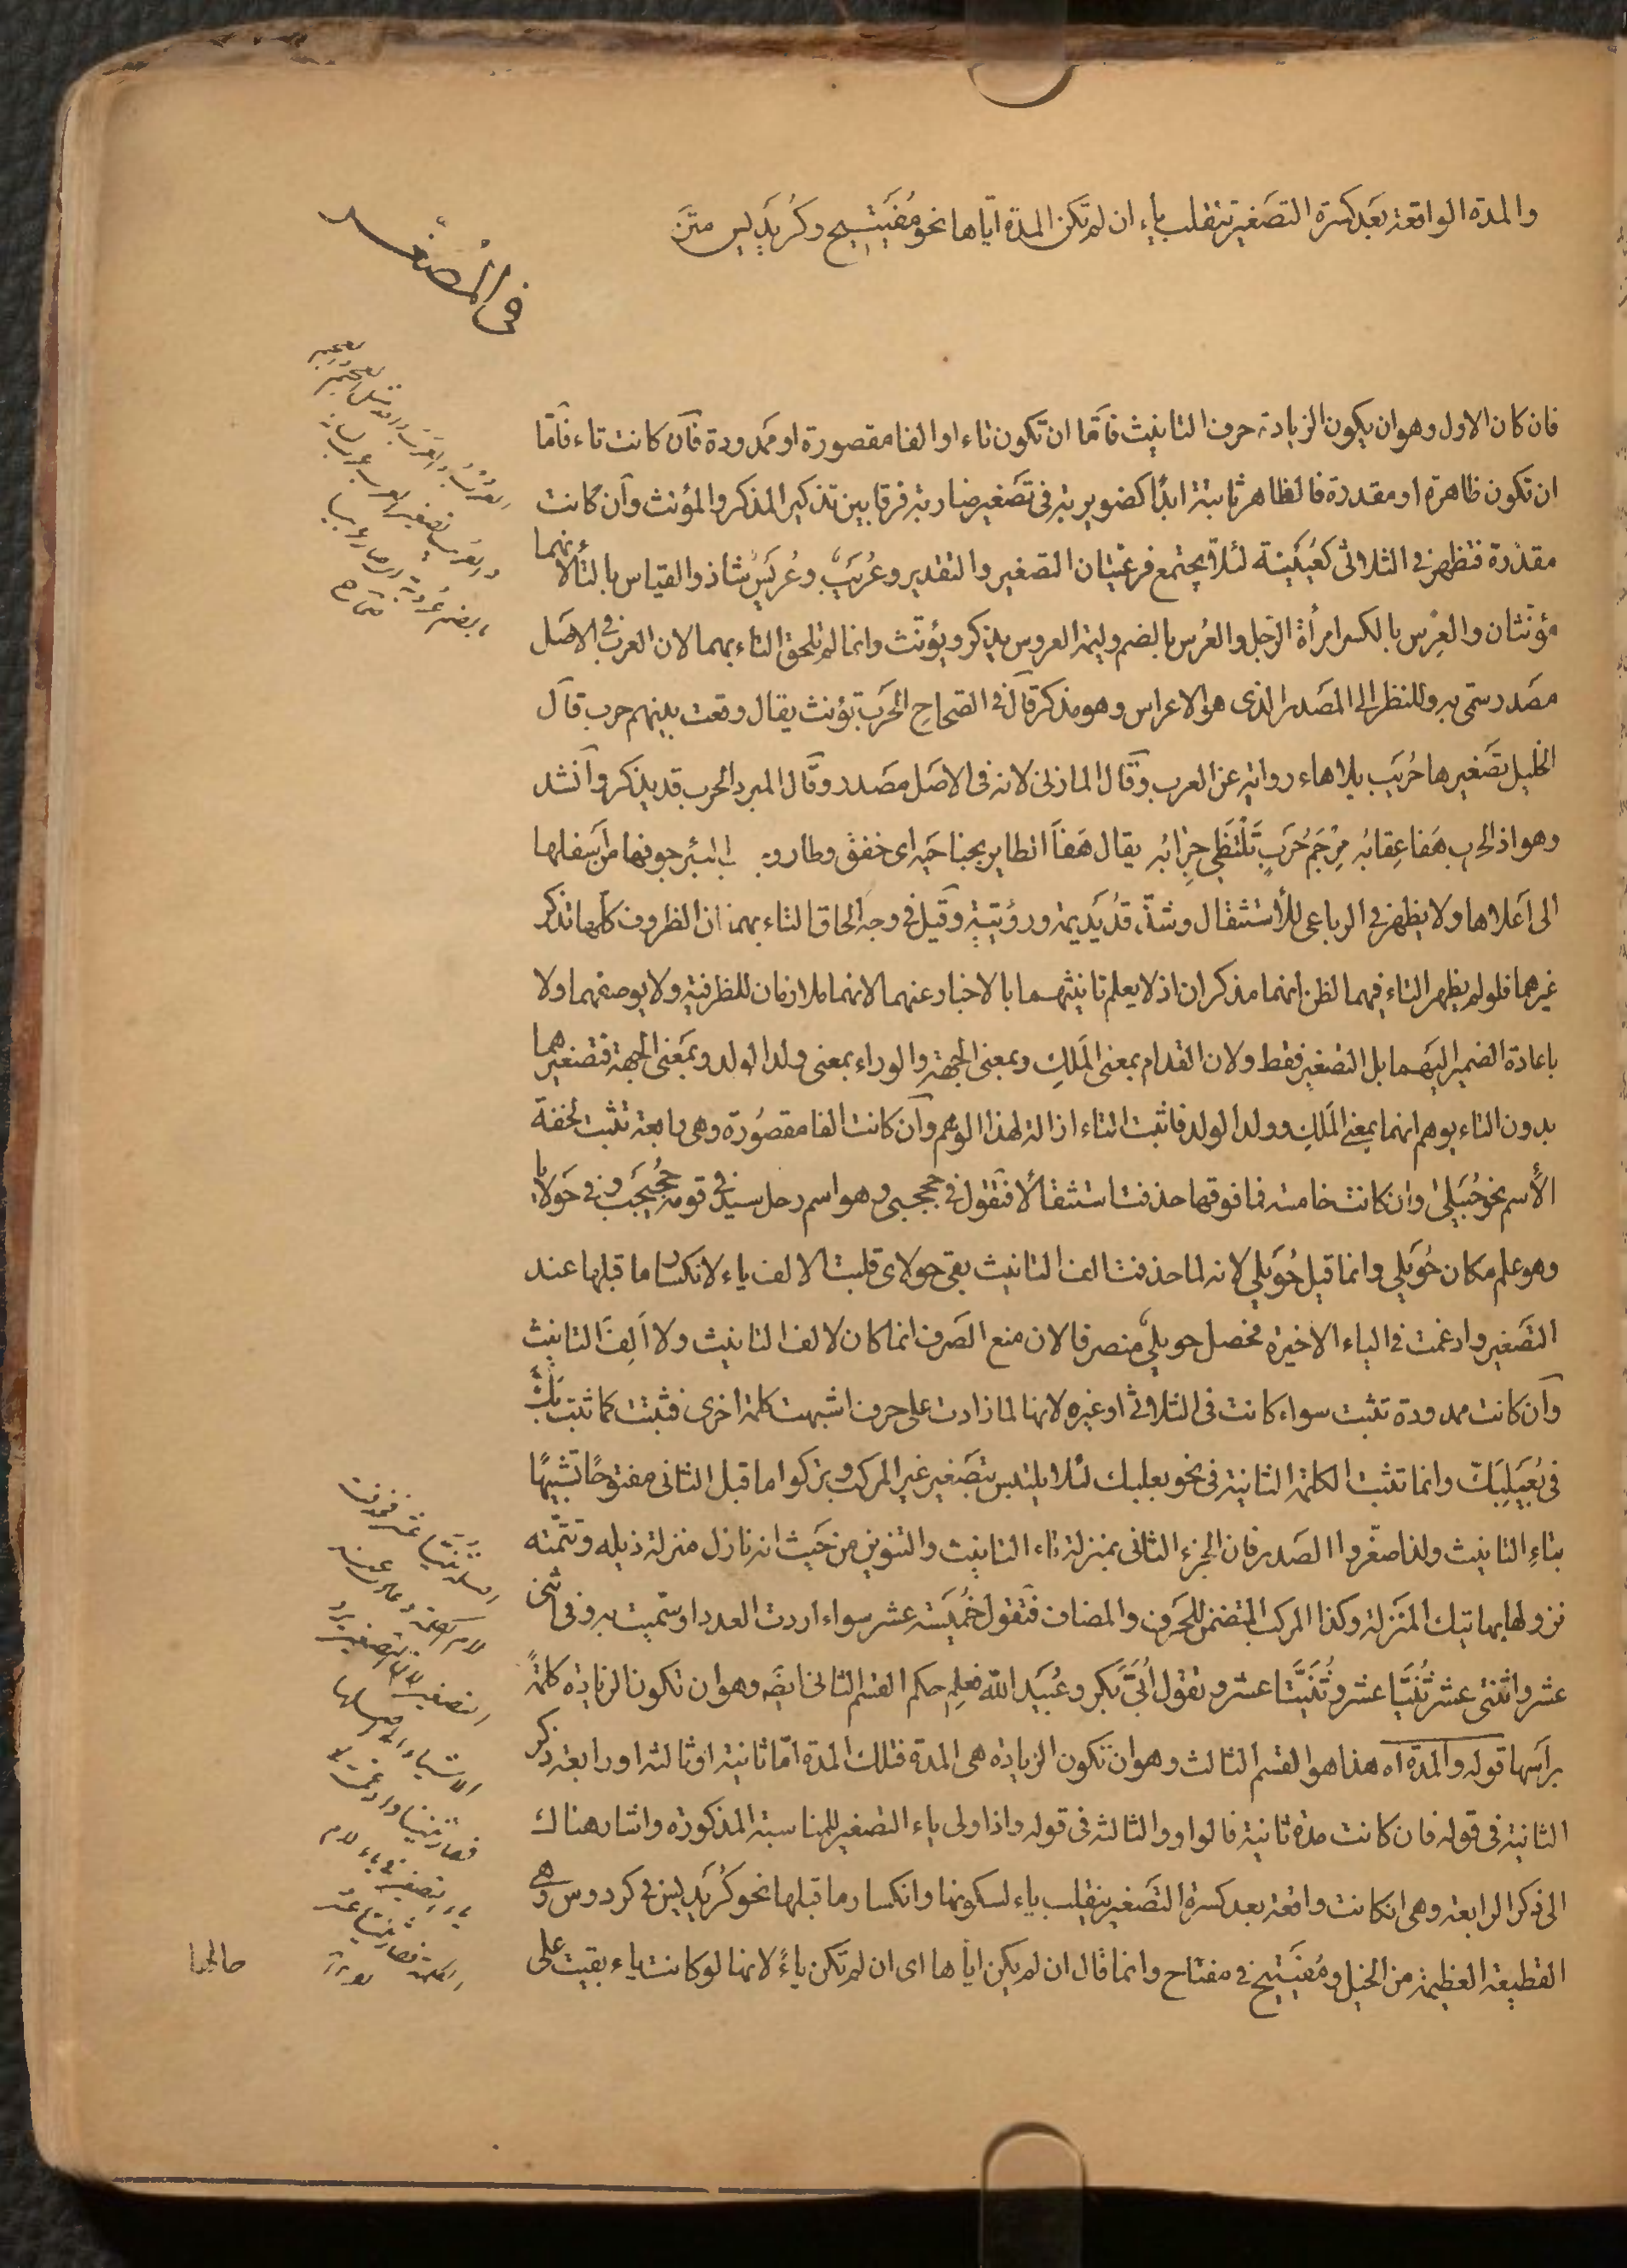 والمدة الواقعة بعد كسرة التصغير تنقلب ياء ان لم تكن المدة اياها نحو مُفَيْتيح وكُرَيْديس متن
فى المُصَغّر
فان كان الاول وهو ان يكون الزيادة حرف التانيث فاَمّا ان تكون تاء او الفا مقصورة او ممدودة فاَن كانت تاء فاَمّا
ان تكون ظاهرة او مقدرة فالظاهر ثابتة ابدًا كضويربة فى تصغير ضاربة فرقا بين تذكير المذكر والمؤنث واَن كانت
مقدّرة فتظهر فى الثلاثى كعُيَيْنة لئلاّ يجتمع فرعيتان التصغير والتقدير وعُرَيْبٌ وعُرَيْسٌ شاذ والقياس بالتاء لانهما
مؤنثان والعِرْس بالكسر امرأة الرجل والعُرس بالضم وليمة العروس يذكر ويؤنث وانما لم تلحق التاء بهما لان العرب فى الاصل
مصَدر سمّى به وللنظر الى المصَدر الذى هو الاعراس وهو مذكر قاَل فى الصحاح الحَرب تؤنث يقال وقعت بينهم حرب قاَل
الخليل تصَغيرها حُرَيب بلا هاء رواية عن العرب وقاَل المازنى لانه فى الاصَل مصَدر وقاَل المبرد الحرب قد يذكر واَنشد
وهو اذ الحرب هَفا عِقابُه مِرْجَم حَربٍ تَلْتَظى حِرابُه يقال هَفاَ الطاير بجناحَيه اى خفق وطار وجراب البئر جوفها من اَسفلها
الى اَعلاها ولا يظهر فى الرباعى للاستثقال وشذّ قُدَيْديمة ورُوَيِّئة وقيل فى وجه الحاق التاء بهما ان الظروف كلّها تذكر
غيرهما فلو لم يظهر التاء فيهما لظن انهما مذكران اذ لا يعلم تانيثهما بالاخبار عنهما لانهما ملازمان للظرفية ولا بوصفهما ولا
باعادة الضمير اليهما بل التصغير فقط ولان القدام بمعنى المَلَكِ وبمعنى الجهة والوراء بمعنى ولد الولد وبمَعنى الجهة فتصغيرهما
بدون التاء يوهم انهما بمعنى المَلَكِ وولد الولد فاثبت التاء ازالة لهذا الوهم واَن كانت الفا مقصُورة وهى رابعة تثبت لخفة
الاسم نحو حُبَيْلى وان كانت خامسة فما فوقها حذفت استثقالًا فتقول فى جحجبى وهو اسم رجل سيد فى قومه جُحَيْجب وفى حَولايا
وهو علم مكان حُوَيْلى وانما قيل حُوَيْلى لانه لما حذفت الف التانيث بقى حولاى قلبت الالف ياء لانكسار ما قبلها عند
التصَغير وادغمت فى الياء الاخيرة فحصل حويلىٌ منصرفا لان منع الصَرف انما كان لالف التانيث ولا اَلِفَ التانيث
واَن كانت ممدودة تثبت سواء كانت فى الثلاثى او غيره لانها لما زادت على حرف اشبهت كلمة اخرى فثبتت كما ثبت بَكّ
فى بُعَيْلِبَكّ وانما تثبت الكلمة الثانية فى نحو بعلبك لئلا يلتبس بتصَغير غير المركب وتركوا ما قبل الثانى مفتوحًا تشبيهًا
بتاءِ التانيث ولذا صغّروا الصَدر فان الجزء الثانى بمنزلة تاء التانيث والتنوين من حَيث انه نازل منزلة ذيله وتتمّته
نزولها بهاتيك المَنزلة وكذا المركب المتضمن للحَرف والمضاف فتقول خُمَيْسَة عشر سواء اردت العدد او سمّيت به وفى اثنى
عشر واثنتى عشر ثُنَيّا عشر وثُنَيَّتا عشر وتقول اُبَىّ بَكر وعُبَيد الله فعلم حكم القسم الثانى ايضًا وهو ان تكون الزيادة كلمةً
براَسها قوله والمدّة اه هذا هو القسم الثالث وهو ان تكون الزيادة هى المدة فتلك المدة امّا ثانية او ثالثة او رابعة ذكر
الثانية فى قوله فان كانت مدة ثانية فالواو والثالثة فى قوله واذا ولى ياء التصغير للمناسبة المذكورة واشار هناك
الى ذكر الرابعة وهى ان كانت واقعة بعد كسرة التصَغير ينقلب ياء لسكونها وانكسار ما قبلها نحو كُرَيديس فى كردوس وهى
القطيعة العظيمة من الخيل ومُفَيْتيح فى مفتاح وانما قال ان لم يكن اياها اى ان لم تكن ياءً لانها لو كانت ياء بقيت على
حالها